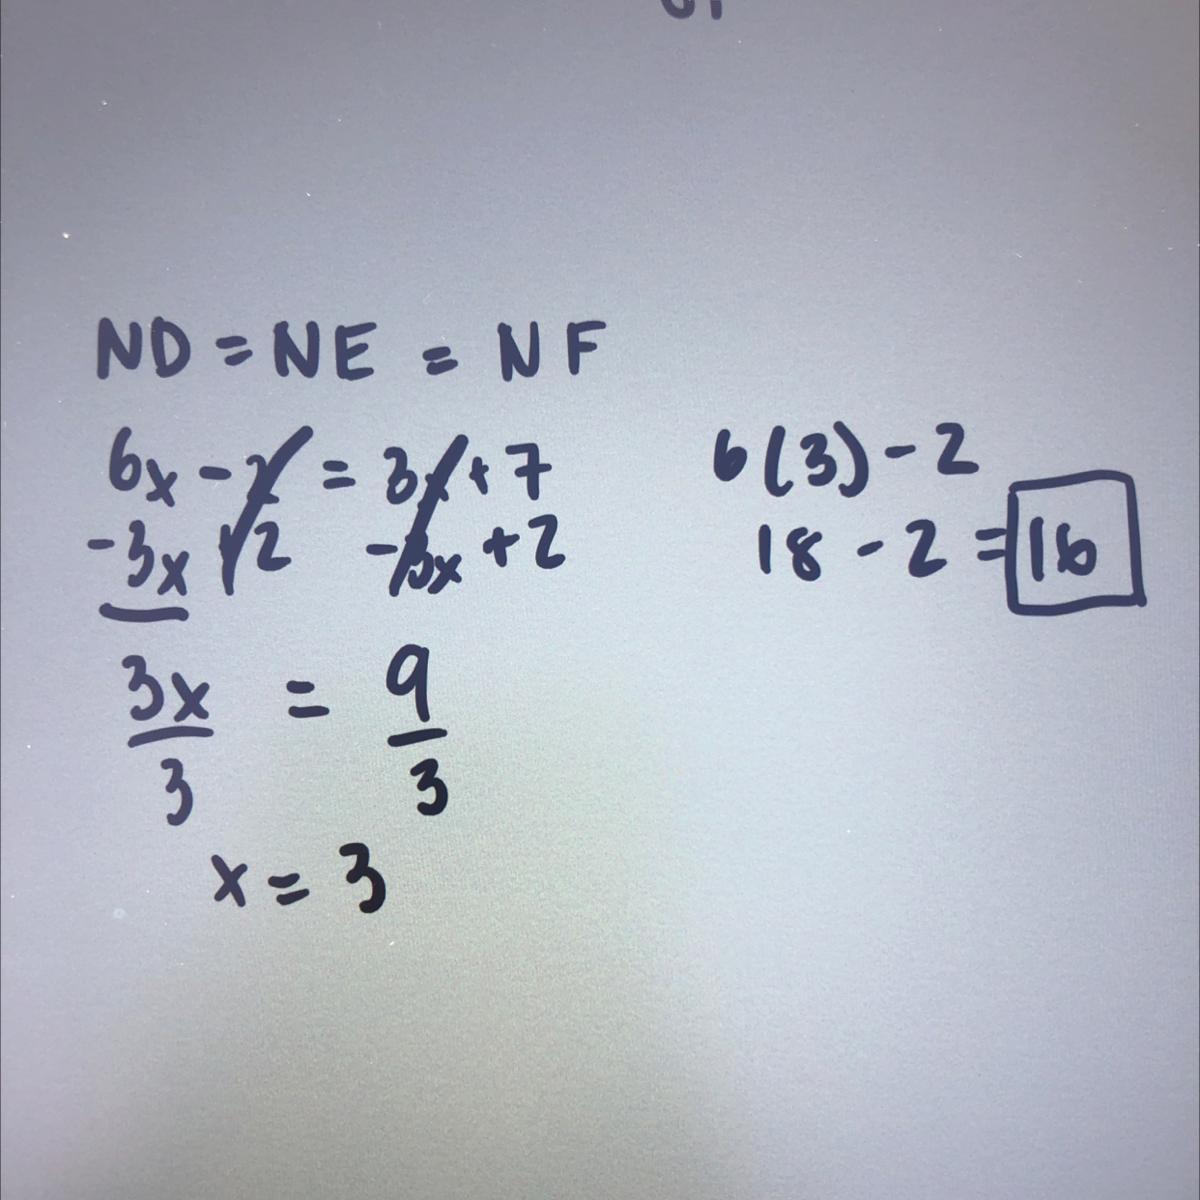 ND = NE = NF
6x - 2 = 3x + 7
-3x +2 -3x +2
3x = 9
3 3
x = 3
6(3) - 2
18 - 2 = 16